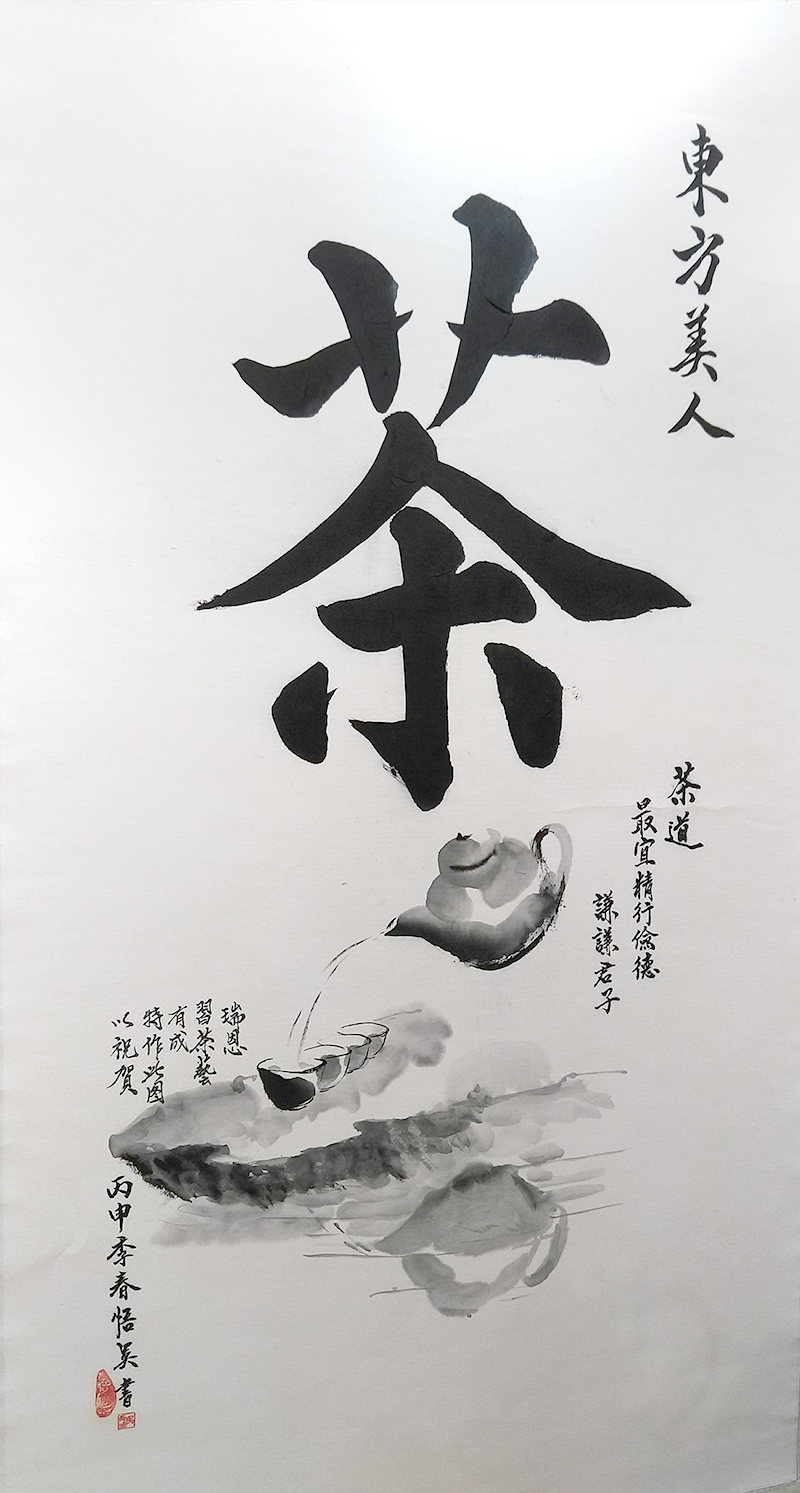 東方美人
茶
茶道
最宜精行儉德
謙謙君子
瑞恩
習茶藝
有成
特作此图
以祝賀
丙申季春悟吴書